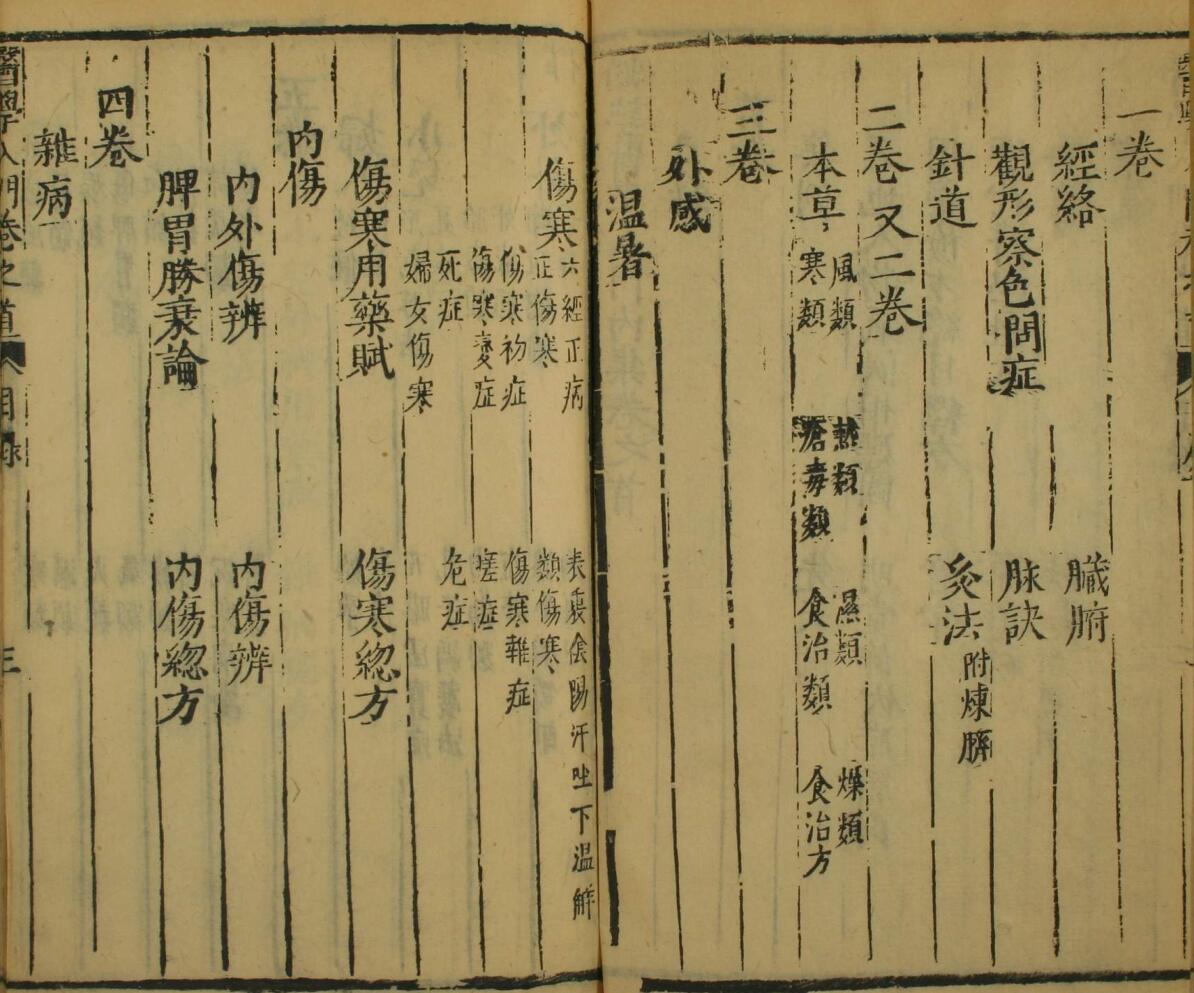 一卷
經絡 臟腑
觀形察色問症 脉訣
針道 灸法 附煉臍
二卷 又二卷
本草 風類 熱類 濕類 燥類
寒類 瘡毒類 食治類 食治方
三卷
外感
温暑
傷寒 六經正病 表裏陰陽汗吐下温解
正傷寒 類傷寒
傷寒初症 傷寒雜症
傷寒變症 瘥症
死症 危症
婦女傷寒
傷寒用藥賦 傷寒總方
内傷
内外傷辨 内傷辨
脾胃勝衰論 内傷總方
四卷
雜病
醫學入門卷之首 目録